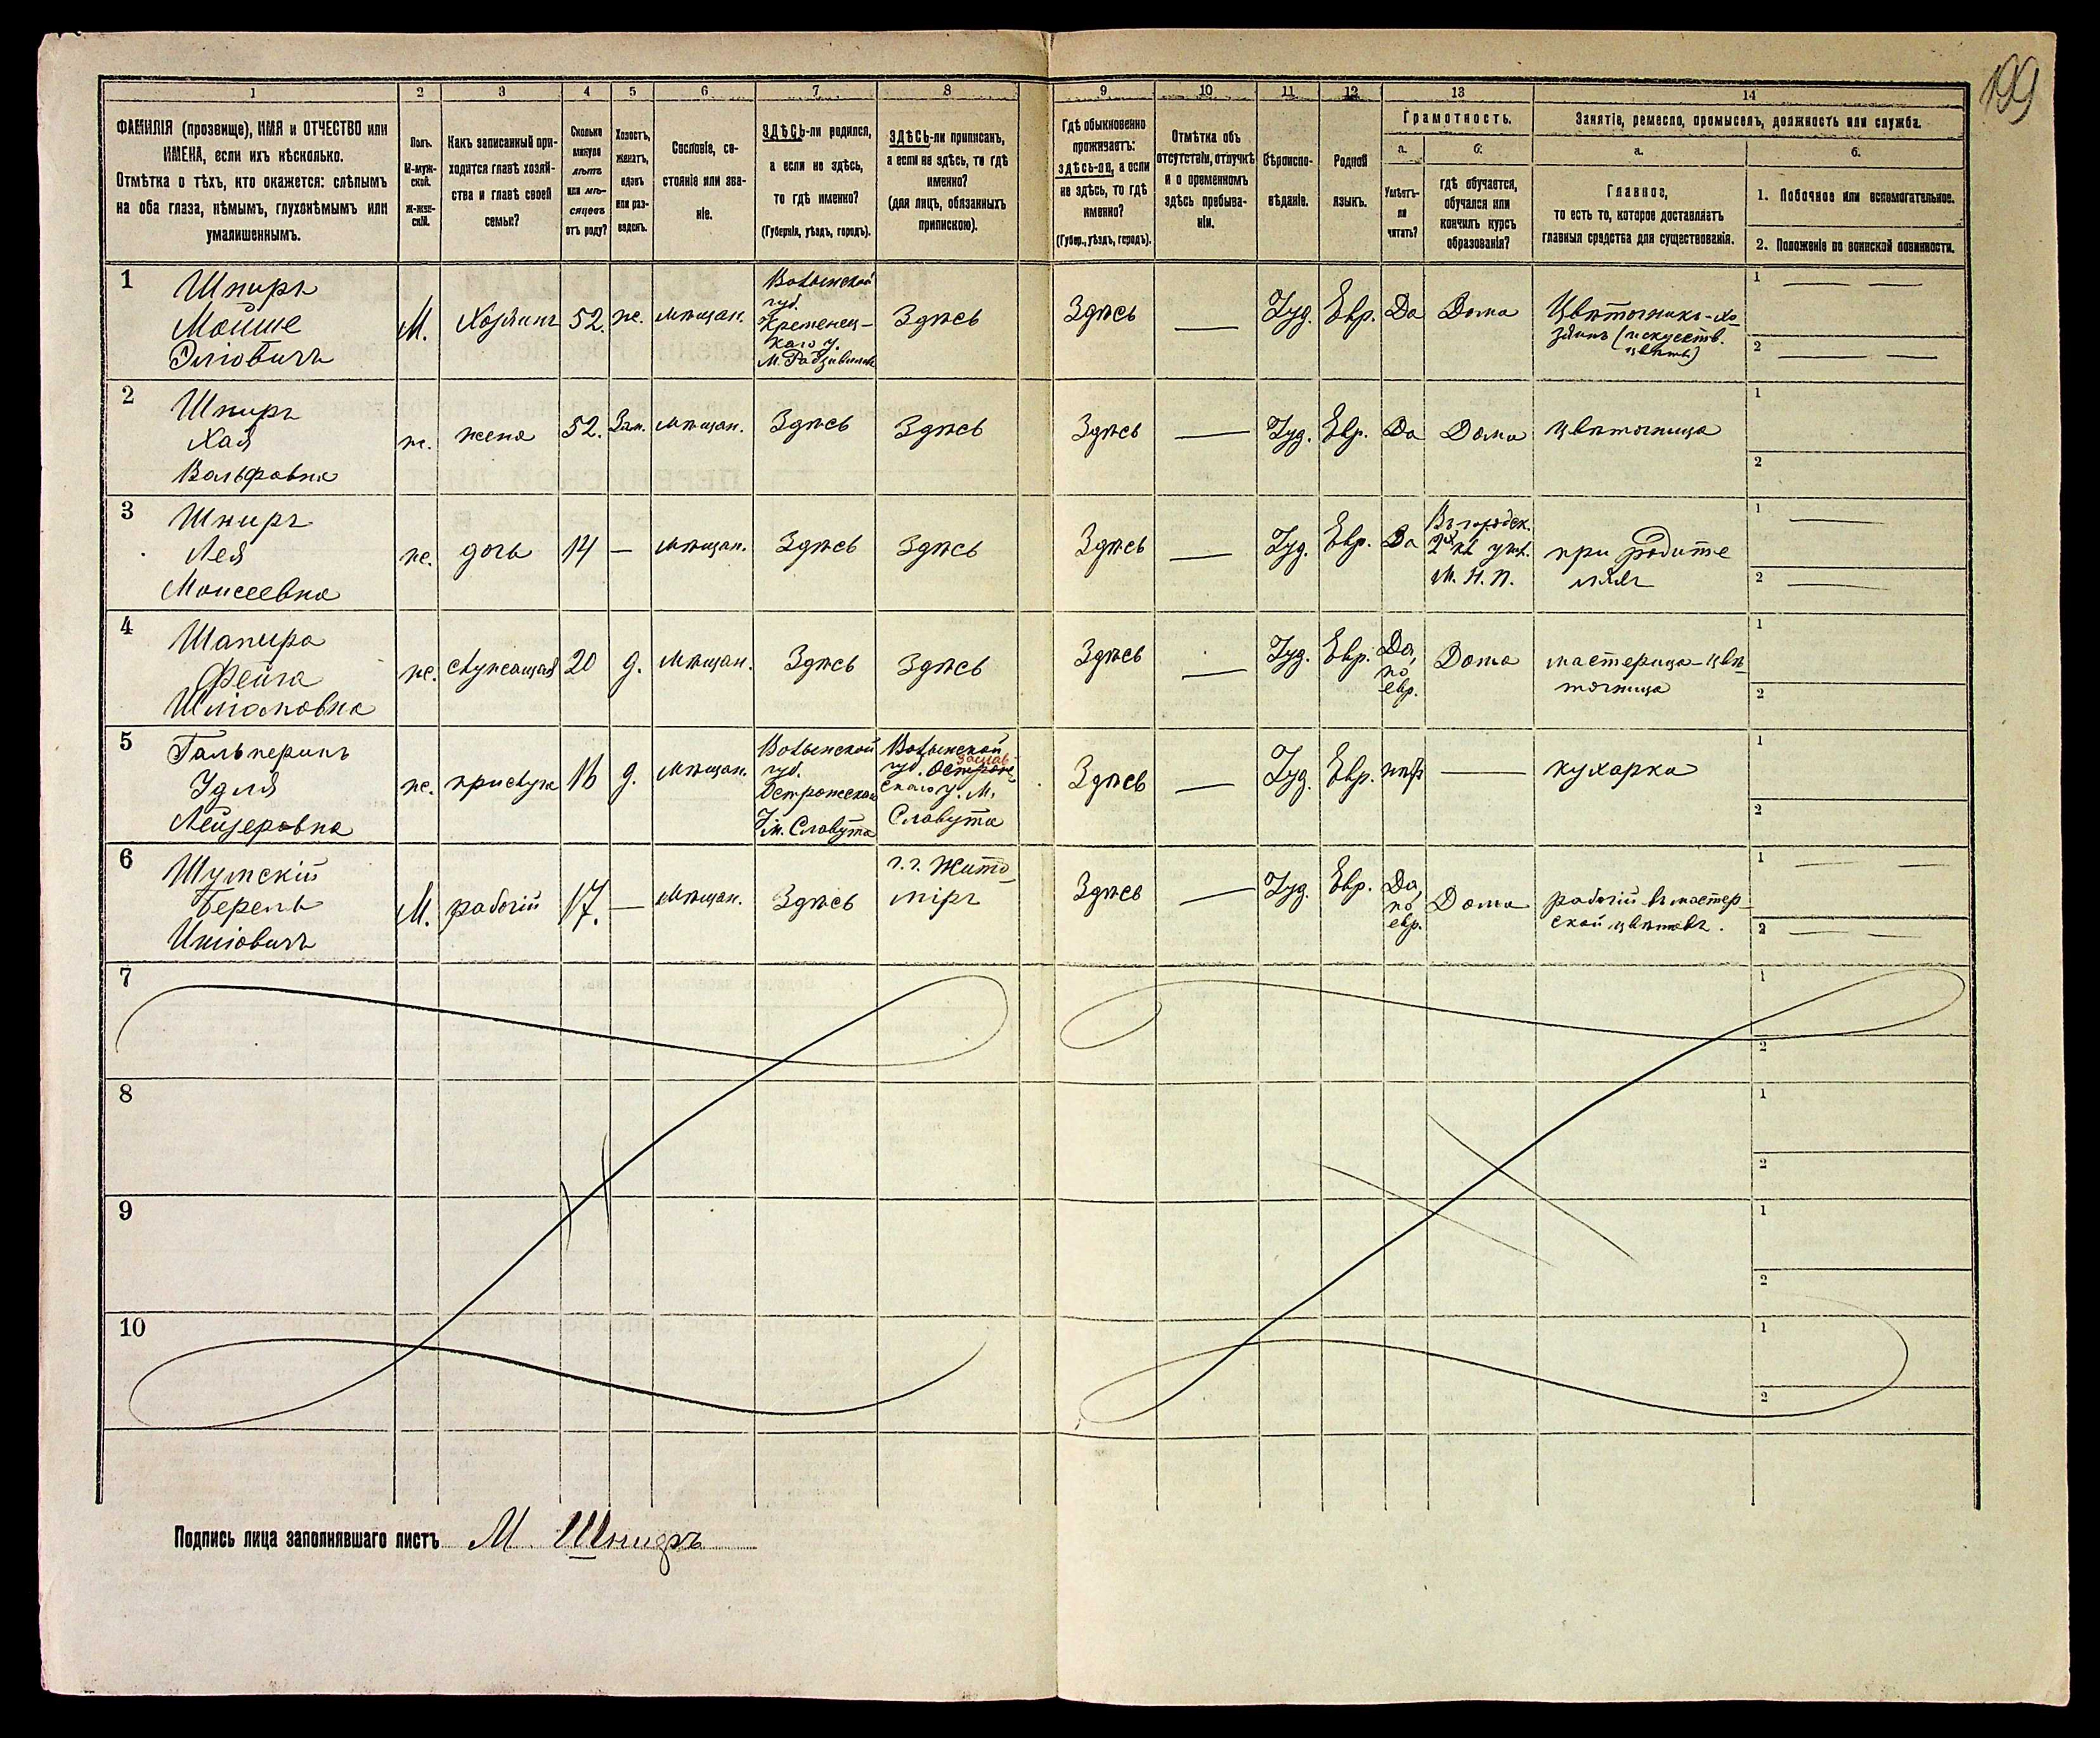 199
1 2 3 4 5 6 7 8 9 10 11 12 13 14
ФАМИЛІЯ (прозвище), ИМЯ и ОТЧЕСТВО или
ИМЕНА, если ихъ нѣсколько.
Отмѣтка о тѣхъ, кто окажется: слѣпымъ
на оба глаза, нѣмымъ, глухонѣмымъ или
умалишеннымъ.
Полъ.
М-муж-
ской.
Ж-жен-
скій.
Какъ записанный при-
ходится главѣ хозяй-
ства и главѣ своей
семьи?
Сколько
минуло
лѣтъ
или мѣ-
сяцевъ
отъ роду?
Холостъ,
женатъ,
вдовъ
или раз-
веденъ.
Сословіе, со-
стояніе или зва-
ніе.
ЗДѢСЬ-ли родился,
а если не здѣсь,
то гдѣ именно?
(Губернія, уѣздъ, городъ).
ЗДѢСЬ-ли приписанъ,
а если не здѣсь, то гдѣ
именно?
(для лицъ, обязанныхъ
припискою).
Гдѣ обыкновенно
проживаетъ:
здѣсь-ли, а если
не здѣсь, то гдѣ
именно?
(Губер., уѣздъ, городъ).
Отмѣтка объ
отсутствіи, отлучкѣ
и о временномъ
здѣсь пребыва-
ніи.
Вѣроиспо-
вѣданіе.
Родной
языкъ.
Грамотность.
а.
Умѣетъ-
ли
читать?
б.
гдѣ обучается,
обучался или
кончилъ курсъ
образованія?
Занятіе, ремесло, промыселъ, должность или служба.
а.
Главное,
то есть то, которое доставляетъ
главныя средства для существованія.
б.
1. Побочное или вспомогательное.
2. Положеніе по воинской повинности.
1
Шниръ
Мойше
Эліовичъ
М.
Хозяинъ
52.
ж.
мѣщан.
Волынской
губ.
Кременец-
каго у.
м. Радзивиловъ
Здѣсь
Здѣсь
—
Іуд.
Евр.
Да
Дома
Цвѣточникъ-хо-
зяинъ (искусств.
цвѣты)
1 — —
2 — —
2
Шниръ
Хая
Вольфовна
ж.
жена
52.
Зам.
мѣщан.
Здѣсь
Здѣсь
Здѣсь
—
Іуд.
Евр.
Да
Дома
цвѣточница
1
2
3
Шниръ
Лея
Моисеевна
ж.
дочь
14
—
мѣщан.
Здѣсь
Здѣсь
Здѣсь
—
Іуд.
Евр.
Да
Въ городск.
2х кл. учил.
М. Н. П.
при родите
ляхъ
1 —
2 —
4
Шапиро
Фейга
Шліомовна
ж.
служащая
20
д.
мѣщан.
Здѣсь
Здѣсь
Здѣсь
—
Іуд.
Евр.
Да,
по
евр.
Дома
мастерица-цвѣ
точница
1
2
5
Гальперинъ
Удля
Лейзеровна
ж.
прислуга
16
д.
мѣщан.
Волынской
губ.
Острожскаго
у. м. Славута
Волынской
заслав
губ. Острож
скаго у. М.
Славута
Здѣсь
—
Іуд.
Евр.
нѣтъ
—
кухарка
1
2
6
Шумскій
Берель
Иціовичъ
М.
рабочій
17.
—
мѣщан.
Здѣсь
г. г. Жито-
міръ
Здѣсь
—
Іуд.
Евр.
Да,
по
евр.
Дома
рабочій въ мастер-
ской цвѣтовъ.
1 — —
2 — —
7
1
2
8
1
2
9
1
2
10
1
2
Подпись лица заполнявшаго листъ М. Шниръ